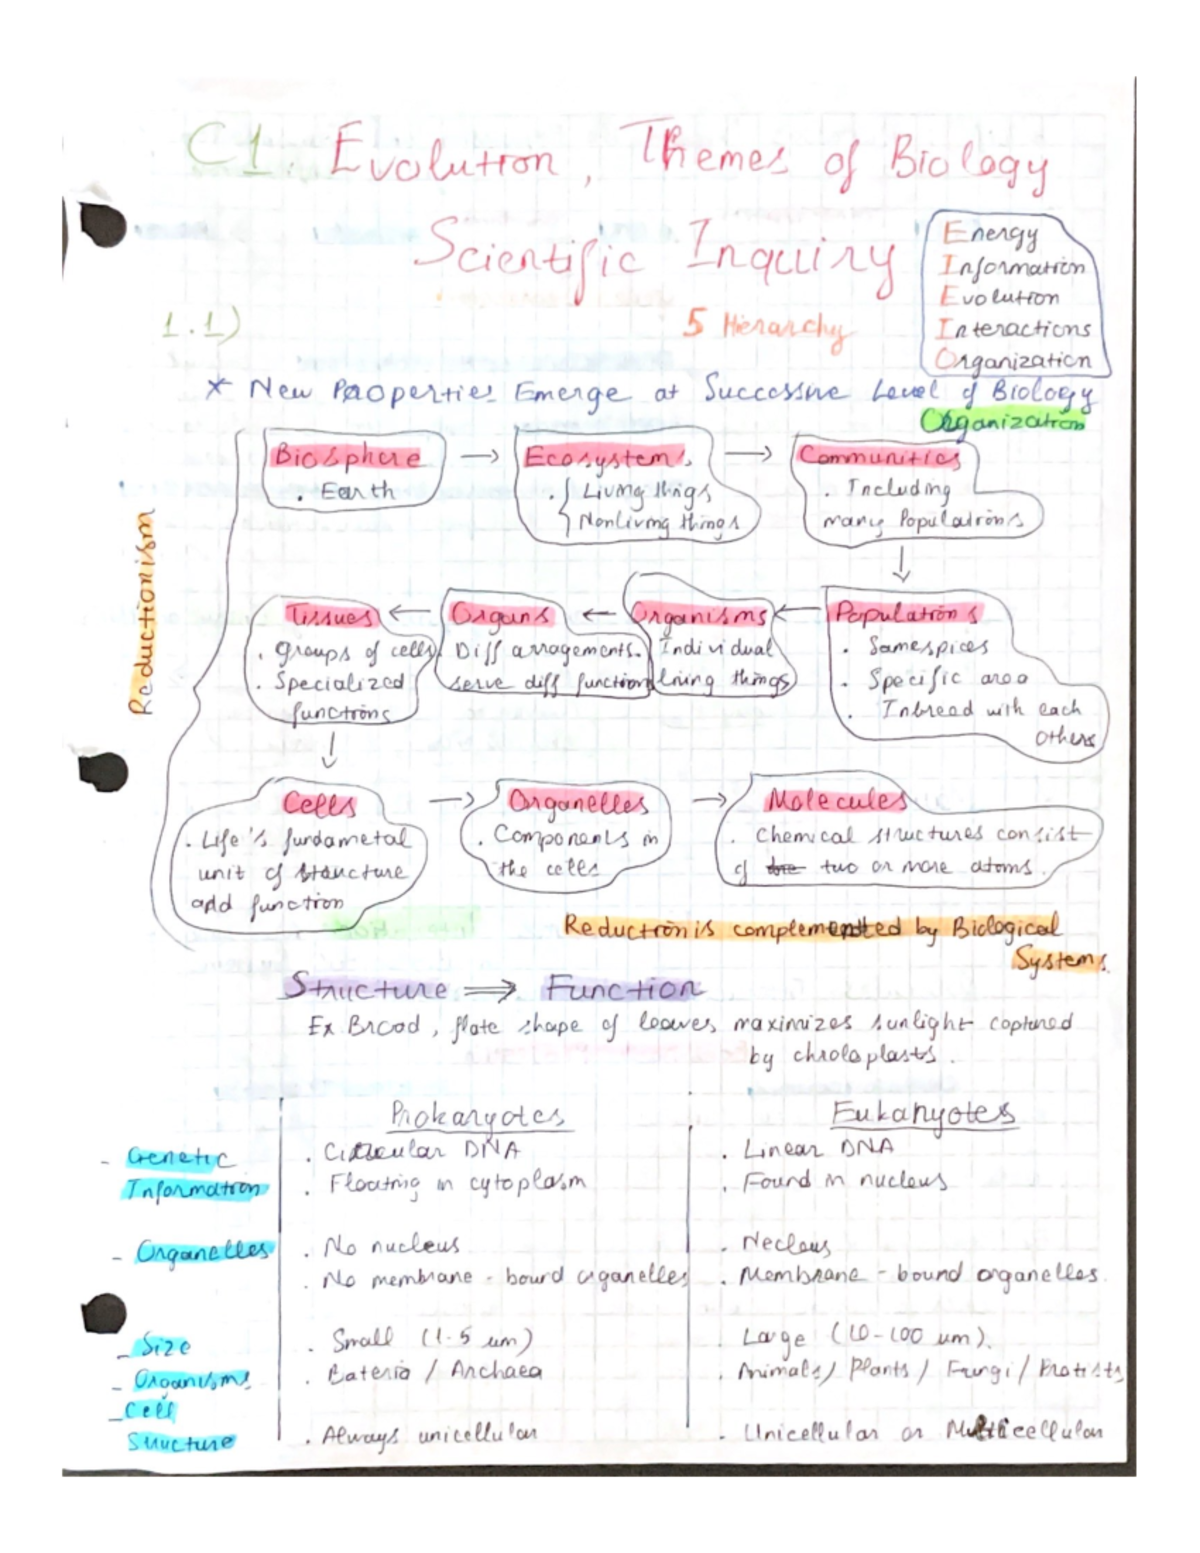 C1. Evolution, Themes of Biology
Scientific Inquiry
Energy
Information
Evolution
Interactions
Organization
1.1)
5 Hierarchy
* New Properties Emerge at Successive Level of Biology
Organization
Reductionism
Biosphere → Ecosystems → Communities
. Earth
. { Living things
Nonliving things
. Including
many Populations
Tissues ← Organs ← Organisms ← Populations
. groups of cells
. Specialized
functions
. Diff arragements.
serve diff function
Individual
living things
. Samespices
. Specific area
. Inbreed with each
others
Cells → Organelles → Molecules
. Life's fundametal
unit of structure
add function
. Components in
the cells
. Chemical structures consist
of two or more atoms.
Reduction is complemented by Biological
Systems
Structure ⇒ Function
Ex Broad, flate shape of leaves maximizes sunlight captured
by chroloplasts.
Prokaryotes
Eukaryotes
- Genetic
Information
. Circular DNA
. Floating in cytoplasm
. Linear DNA
. Found in nucleus
- Organelles
. No nucleus
. No membrane - bound organelles
. Necleus
. Membrane - bound organelles.
- Size
. Small (1-5 um)
. Large (10-100 um).
- Organisms
. Bateria / Archaea
. Animals / Plants / Fungi / Protists
- Cell
Structure
. Always unicellular
. Unicellular or Multicellular